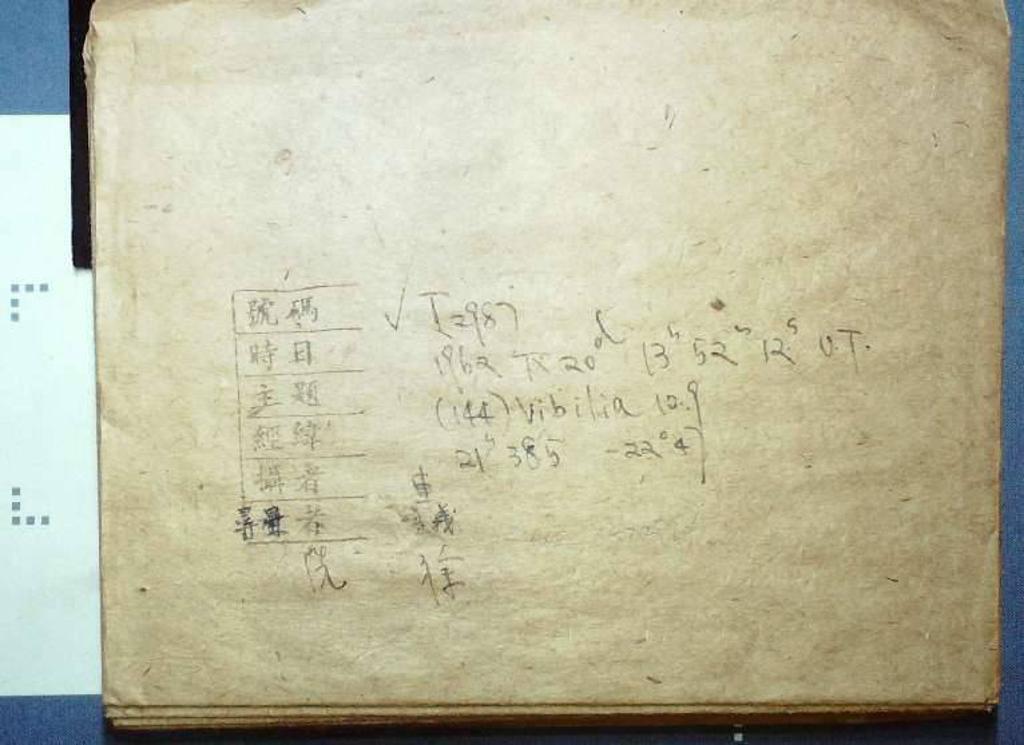 號碼 √ I2987
時日 1962 IX 20ᵈ 13ʰ 52ᵐ 12ˢ U.T.
主題 (144) Vibilia 12.9
經緯 21ʰ 385 -22°47
攝者
者
徐